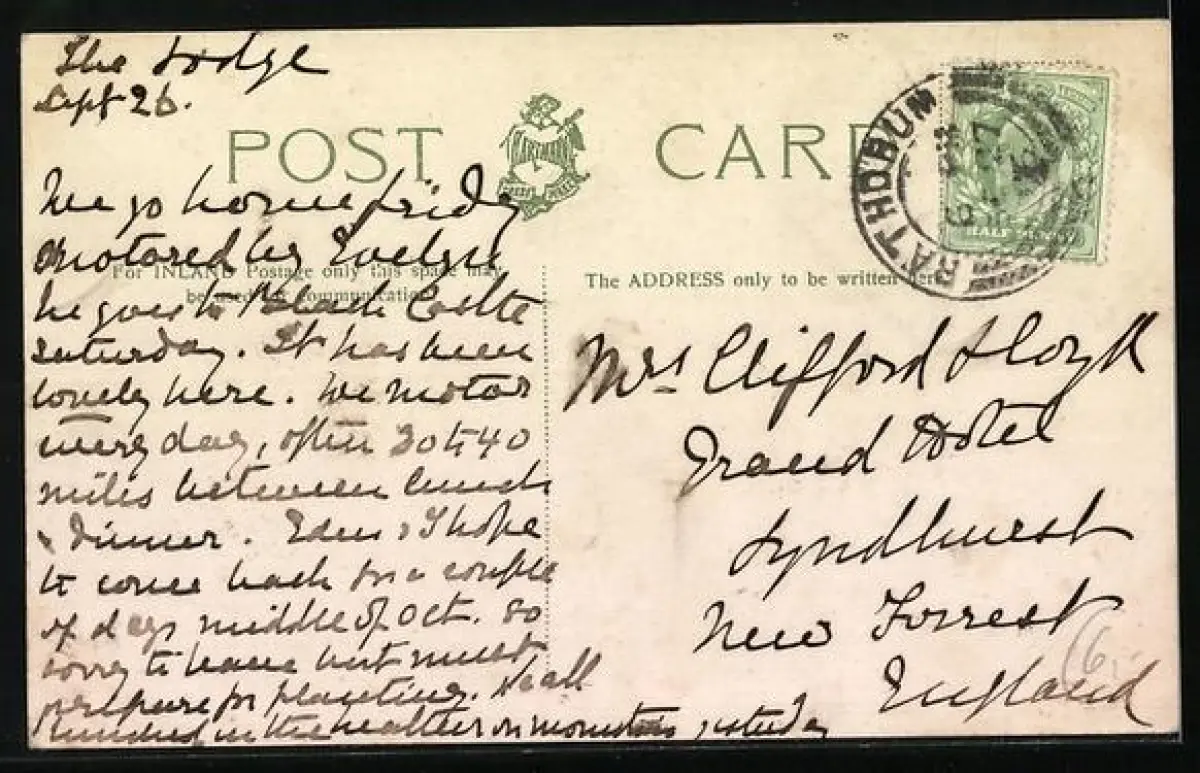 The Lodge
Sept 26.
POST CARD
HARTMANN
RATHDRUM
HALF PENNY
For INLAND Postage only this space may
be used for communication
The ADDRESS only to be written here
We go home friday
motored by Evelyn
he goes to Black Castle
saturday. It has been
lovely here. We motor
every day, often 30 to 40
miles between lunch
& dinner. & I hope
to come back for a couple
of days middle of Oct. So
sorry to leave but must
prepare for planting. We all
lunched in the heather on mountains yesterday
Mrs Clifford Lloyd
Grand Hotel
Lyndhurst
New Forrest
England